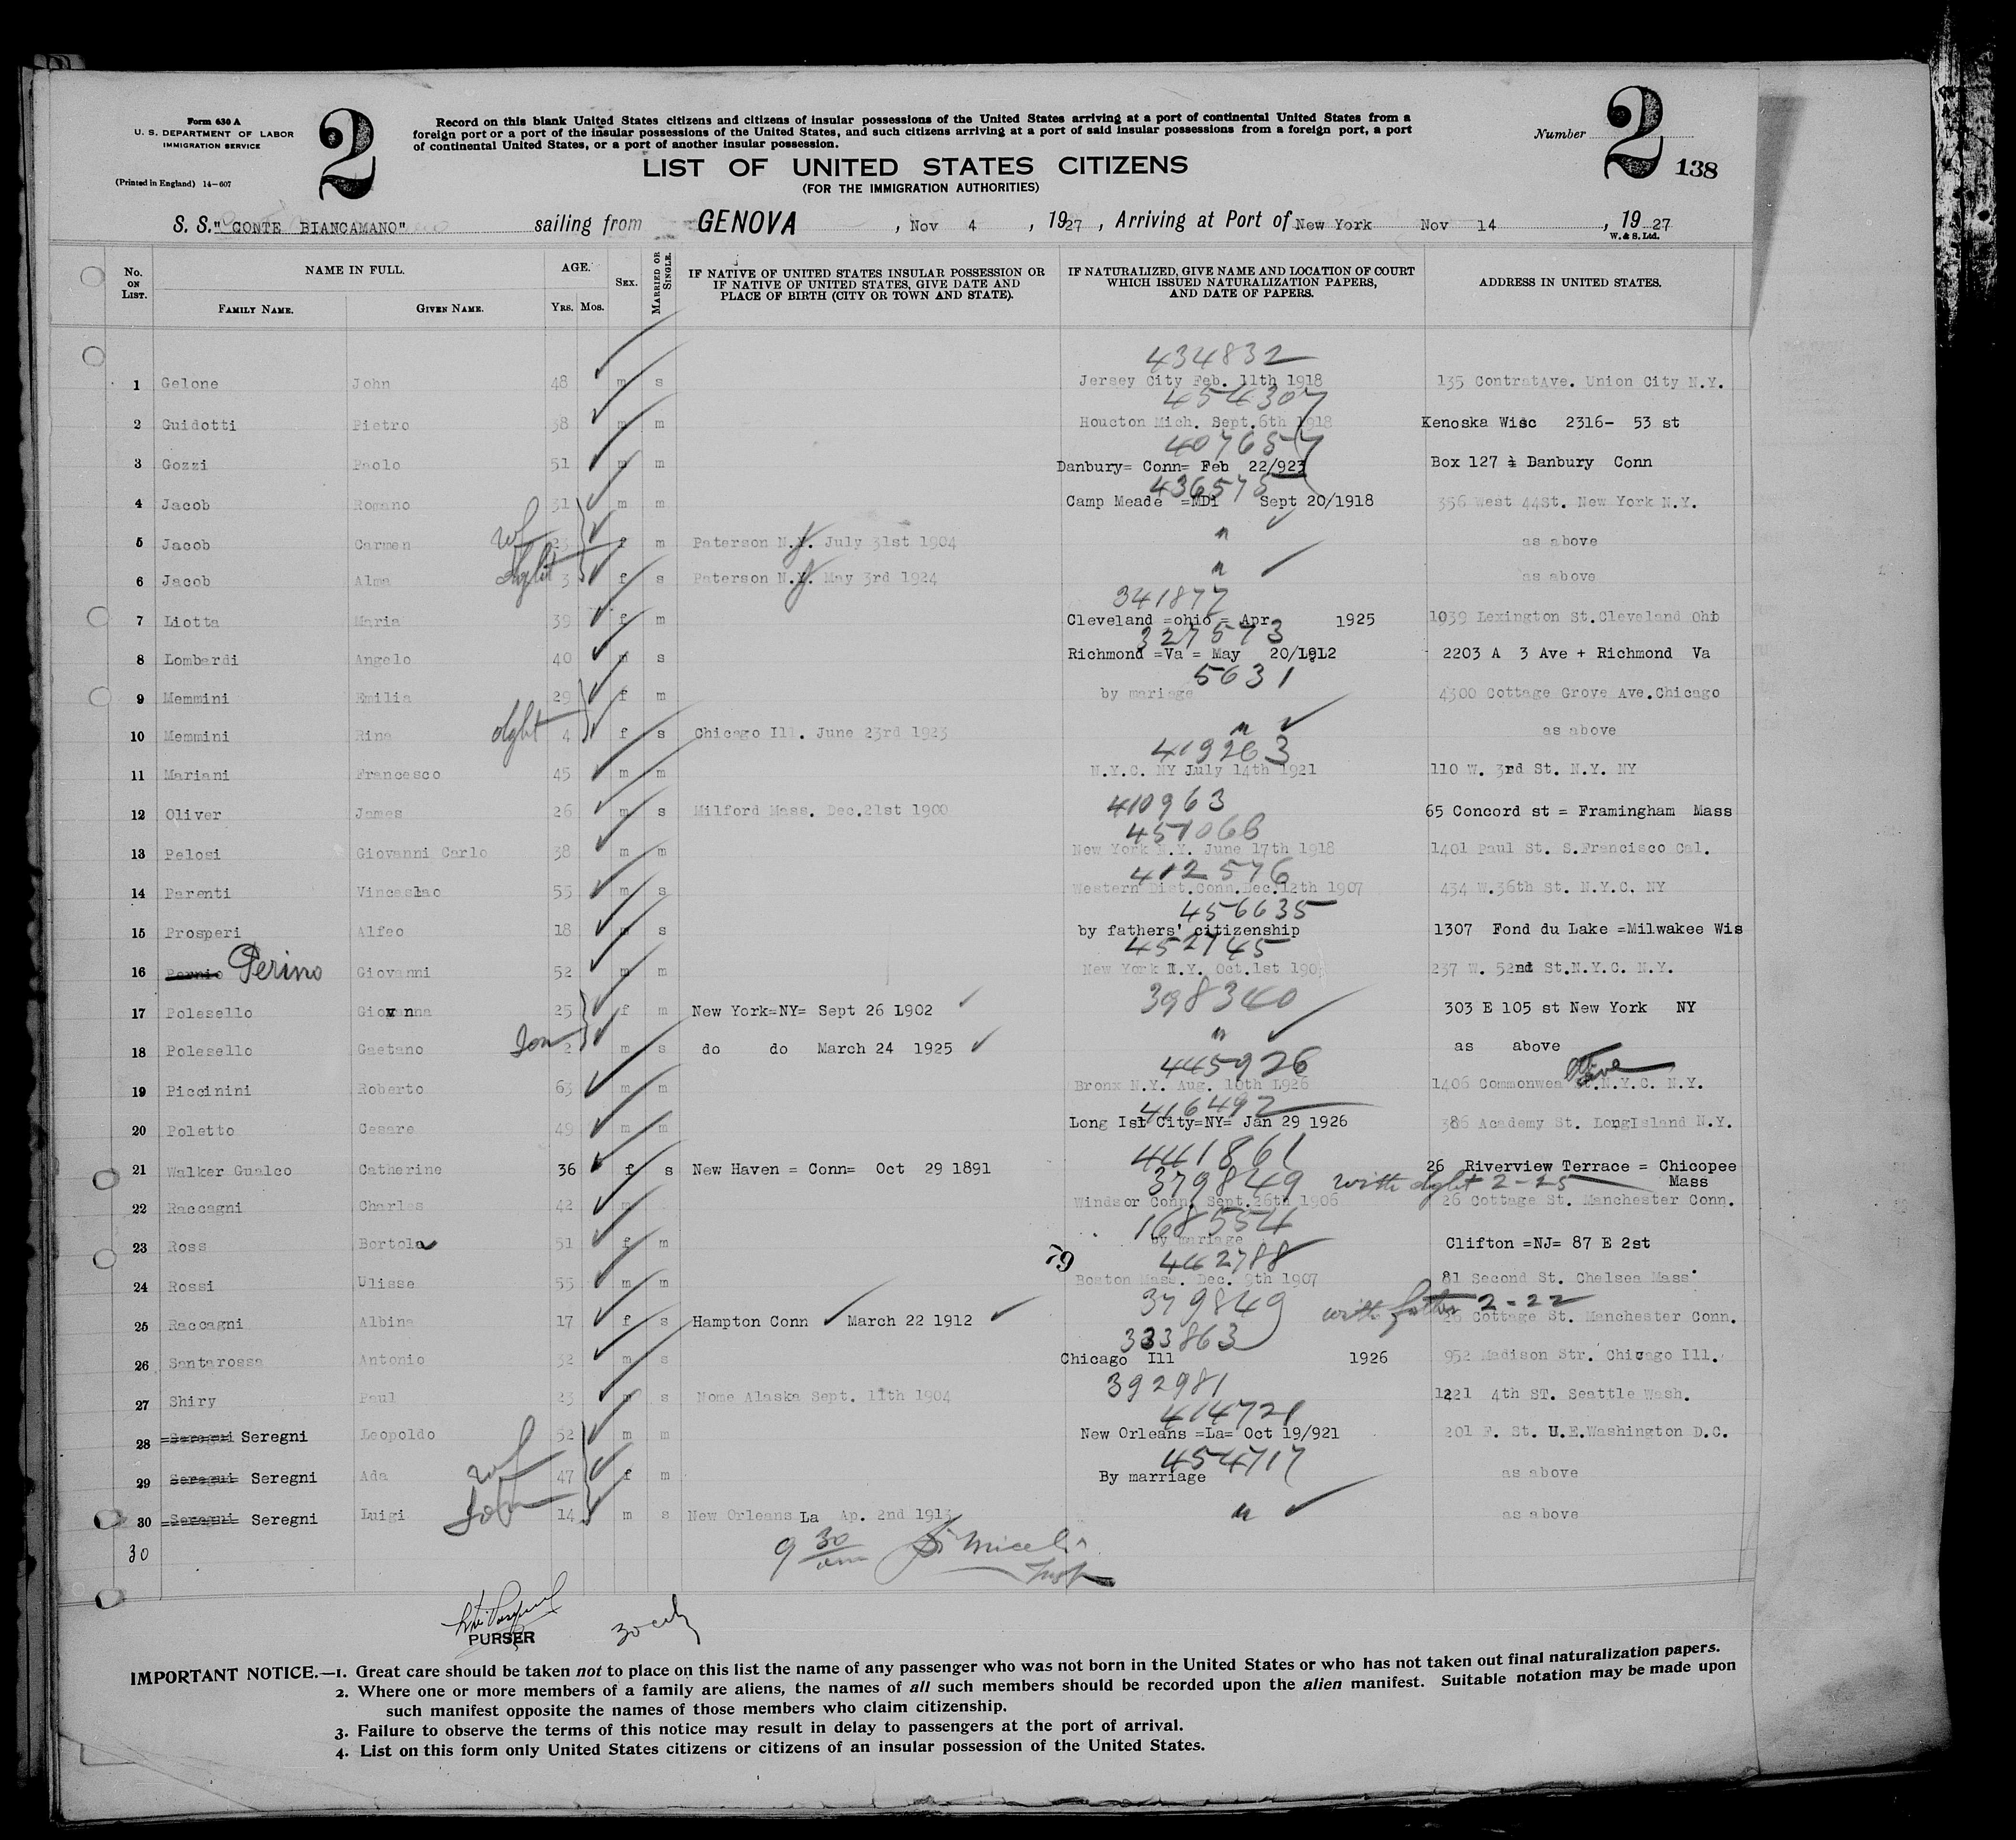 Form 630 A
U. S. DEPARTMENT OF LABOR
IMMIGRATION SERVICE
(Printed in England) 14-607
2
Record on this blank United States citizens and citizens of insular possessions of the United States arriving at a port of continental United States from a
foreign port or a port of the insular possessions of the United States, and such citizens arriving at a port of said insular possessions from a foreign port, a port
of continental United States, or a port of another insular possession.
LIST OF UNITED STATES CITIZENS
(FOR THE IMMIGRATION AUTHORITIES)
Number 2 138
S. S. "CONTE BIANCAMANO" sailing from GENOVA, Nov 4, 1927, Arriving at Port of New York Nov 14, 1927
W. & S. Ltd.
No. ON LIST. NAME IN FULL. FAMILY NAME. GIVEN NAME. AGE. YRS. MOS. SEX. MARRIED OR SINGLE. IF NATIVE OF UNITED STATES INSULAR POSSESSION OR IF NATIVE OF UNITED STATES, GIVE DATE AND PLACE OF BIRTH (CITY OR TOWN AND STATE). IF NATURALIZED, GIVE NAME AND LOCATION OF COURT WHICH ISSUED NATURALIZATION PAPERS, AND DATE OF PAPERS. ADDRESS IN UNITED STATES.
434832
1 Gelone John 48 m s Jersey City Feb. 11th 1918 135 ContratAve. Union City N.Y.
454307
2 Guidotti Pietro 38 m m Houcton Mich. Sept.6th 1918 Kenoska Wisc 2316- 53 st
407657
3 Gozzi Paolo 51 m m Danbury= Conn= Feb 22/923 Box 127 ½ Danbury Conn
436575
4 Jacob Romano 31 m m Camp Meade =MDi Sept 20/1918 356 West 44St. New York N.Y.
5 Jacob Carmen wf 23 f m Paterson N.J. July 31st 1904 " as above
6 Jacob Alma dght 3 f s Paterson N.J. May 3rd 1924 " as above
341877
7 Liotta Maria 39 f m Cleveland =ohio = Apr 1925 1039 Lexington St.Cleveland Ohio
327573
8 Lombardi Angelo 40 m s Richmond =Va = May 20/1912 2203 A 3 Ave + Richmond Va
5631
9 Memmini Emilia 29 f m by mariage 4300 Cottage Grove Ave.Chicago
10 Memmini Rina dght 4 f s Chicago Ill. June 23rd 1923 " as above
419263
11 Mariani Francesco 45 m m N.Y.C. NY July 14th 1921 110 W. 3rd St. N.Y. NY
410963
12 Oliver James 26 m s Milford Mass. Dec.21st 1900 65 Concord st = Framingham Mass
451066
13 Pelosi Giovanni Carlo 38 m m New York N.Y. June 17th 1918 1401 Paul St. S.Francisco Cal.
412576
14 Parenti Vinceslao 55 m s Western Dist.Conn.Dec.12th 1907 434 W.36th St. N.Y.C. NY
456635
15 Prosperi Alfeo 18 m s by fathers' citizenship 1307 Fond du Lake =Milwakee Wis
452745
16 Perino Giovanni 52 m m New York N.Y. Oct.1st 237 W. 52nd St.N.Y.C. N.Y.
398340
17 Polesello Giovanna 25 f m New York=NY= Sept 26 1902 303 E 105 st New York NY
18 Polesello Gaetano Son 2 m s do do March 24 1925 " as above
445926
19 Piccinini Roberto 63 m m Bronx N.Y. Aug. 10th 1926 1406 Commonwea Ave N.Y.C. N.Y.
416492
20 Poletto Cesare 49 m m Long Isl City=NY= Jan 29 1926 386 Academy St. LongIsland N.Y.
441861
21 Walker Gualco Catherine 36 f s New Haven = Conn= Oct 29 1891 26 Riverview Terrace = Chicopee Mass
379849 with dght 2-25
22 Raccagni Charles 42 m Windsor Conn. Sept.26th 1906 26 Cottage St. Manchester Conn.
168554
23 Ross Bortola 51 f m by mariage Clifton =NJ= 87 E 2st
79 442788
24 Rossi Ulisse 55 m m Boston Mass. Dec. 9th 1907 81 Second St. Chelsea Mass.
379849 with father 2-22
25 Raccagni Albina 17 f s Hampton Conn March 22 1912 26 Cottage St. Manchester Conn.
333863
26 Santarossa Antonio 32 m s Chicago Ill 1926 952 Madison Str. Chicago Ill.
392981
27 Shiry Paul 23 m s Nome Alaska Sept. 11th 1904 1221 4th ST. Seattle Wash.
414721
28 Seregni Leopoldo 52 m m New Orleans =La= Oct 19/921 201 F. St. U.E.Washington D.C.
454717
29 Seregni Ada wf 47 f m By marriage as above
30 Seregni Luigi son 14 m s New Orleans La Ap. 2nd 1913 " as above
30
9 30 am Insp
PURSER
IMPORTANT NOTICE.—1. Great care should be taken not to place on this list the name of any passenger who was not born in the United States or who has not taken out final naturalization papers.
2. Where one or more members of a family are aliens, the names of all such members should be recorded upon the alien manifest. Suitable notation may be made upon
such manifest opposite the names of those members who claim citizenship.
3. Failure to observe the terms of this notice may result in delay to passengers at the port of arrival.
4. List on this form only United States citizens or citizens of an insular possession of the United States.